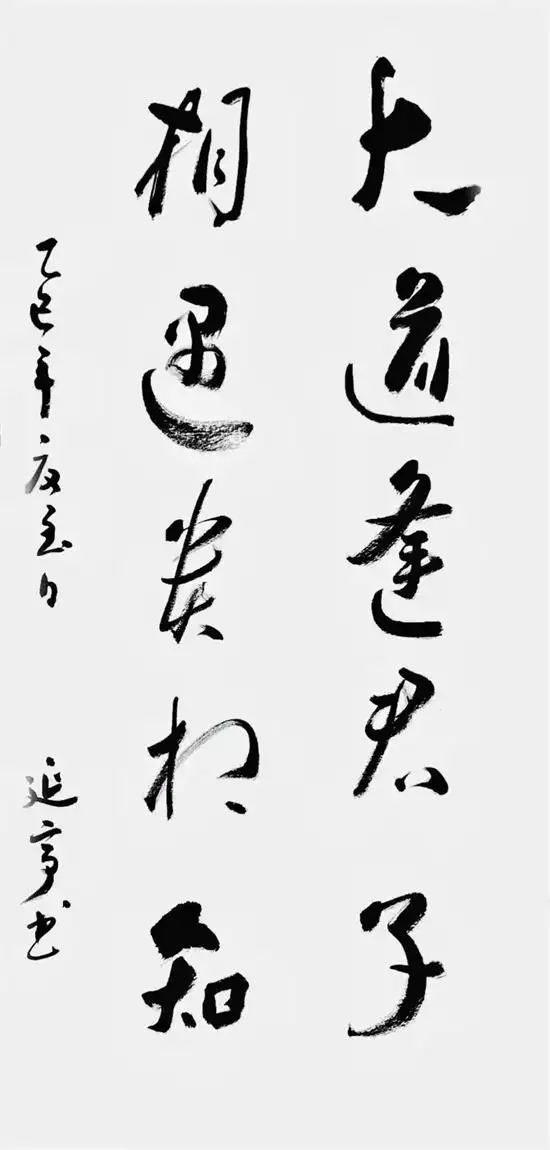 大道逢君子
相遇贵相知
乙巳年夏至日 延亭书